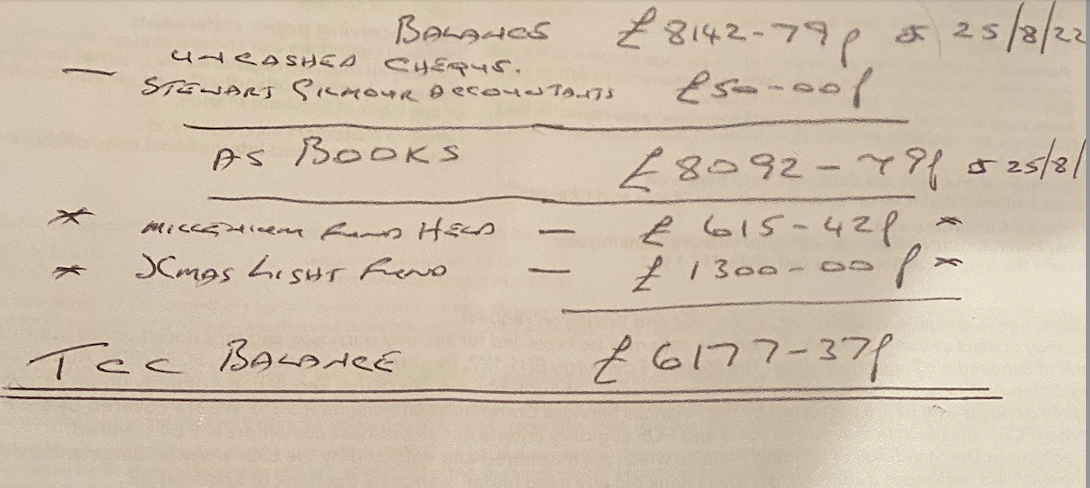 BALANCES £8142-79p 25/8/22
— UNCASHED CHEQUS.
STEWART GILMOUR ACCOUNTANTS £50-00p
AS BOOKS £8092-79p 25/8/
* MILLENIUM FUND HELD — £615-42p *
* XMAS LIGHT FUND — £1300-00p *
TCC BALANCE £6177-37p